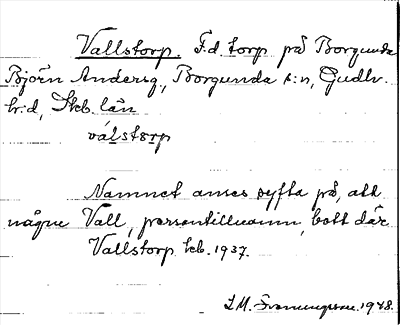 Vallstorp. F.d. torp på Borgunda
Björn Andersg, Borgunda s:n, Gudh.
h:d, Skb. län
válstorp
Namnet anses syfta på, att
någre Vall, persontillnamn, bott där
Vallstorp kb. 1937.
I.M. 1948.